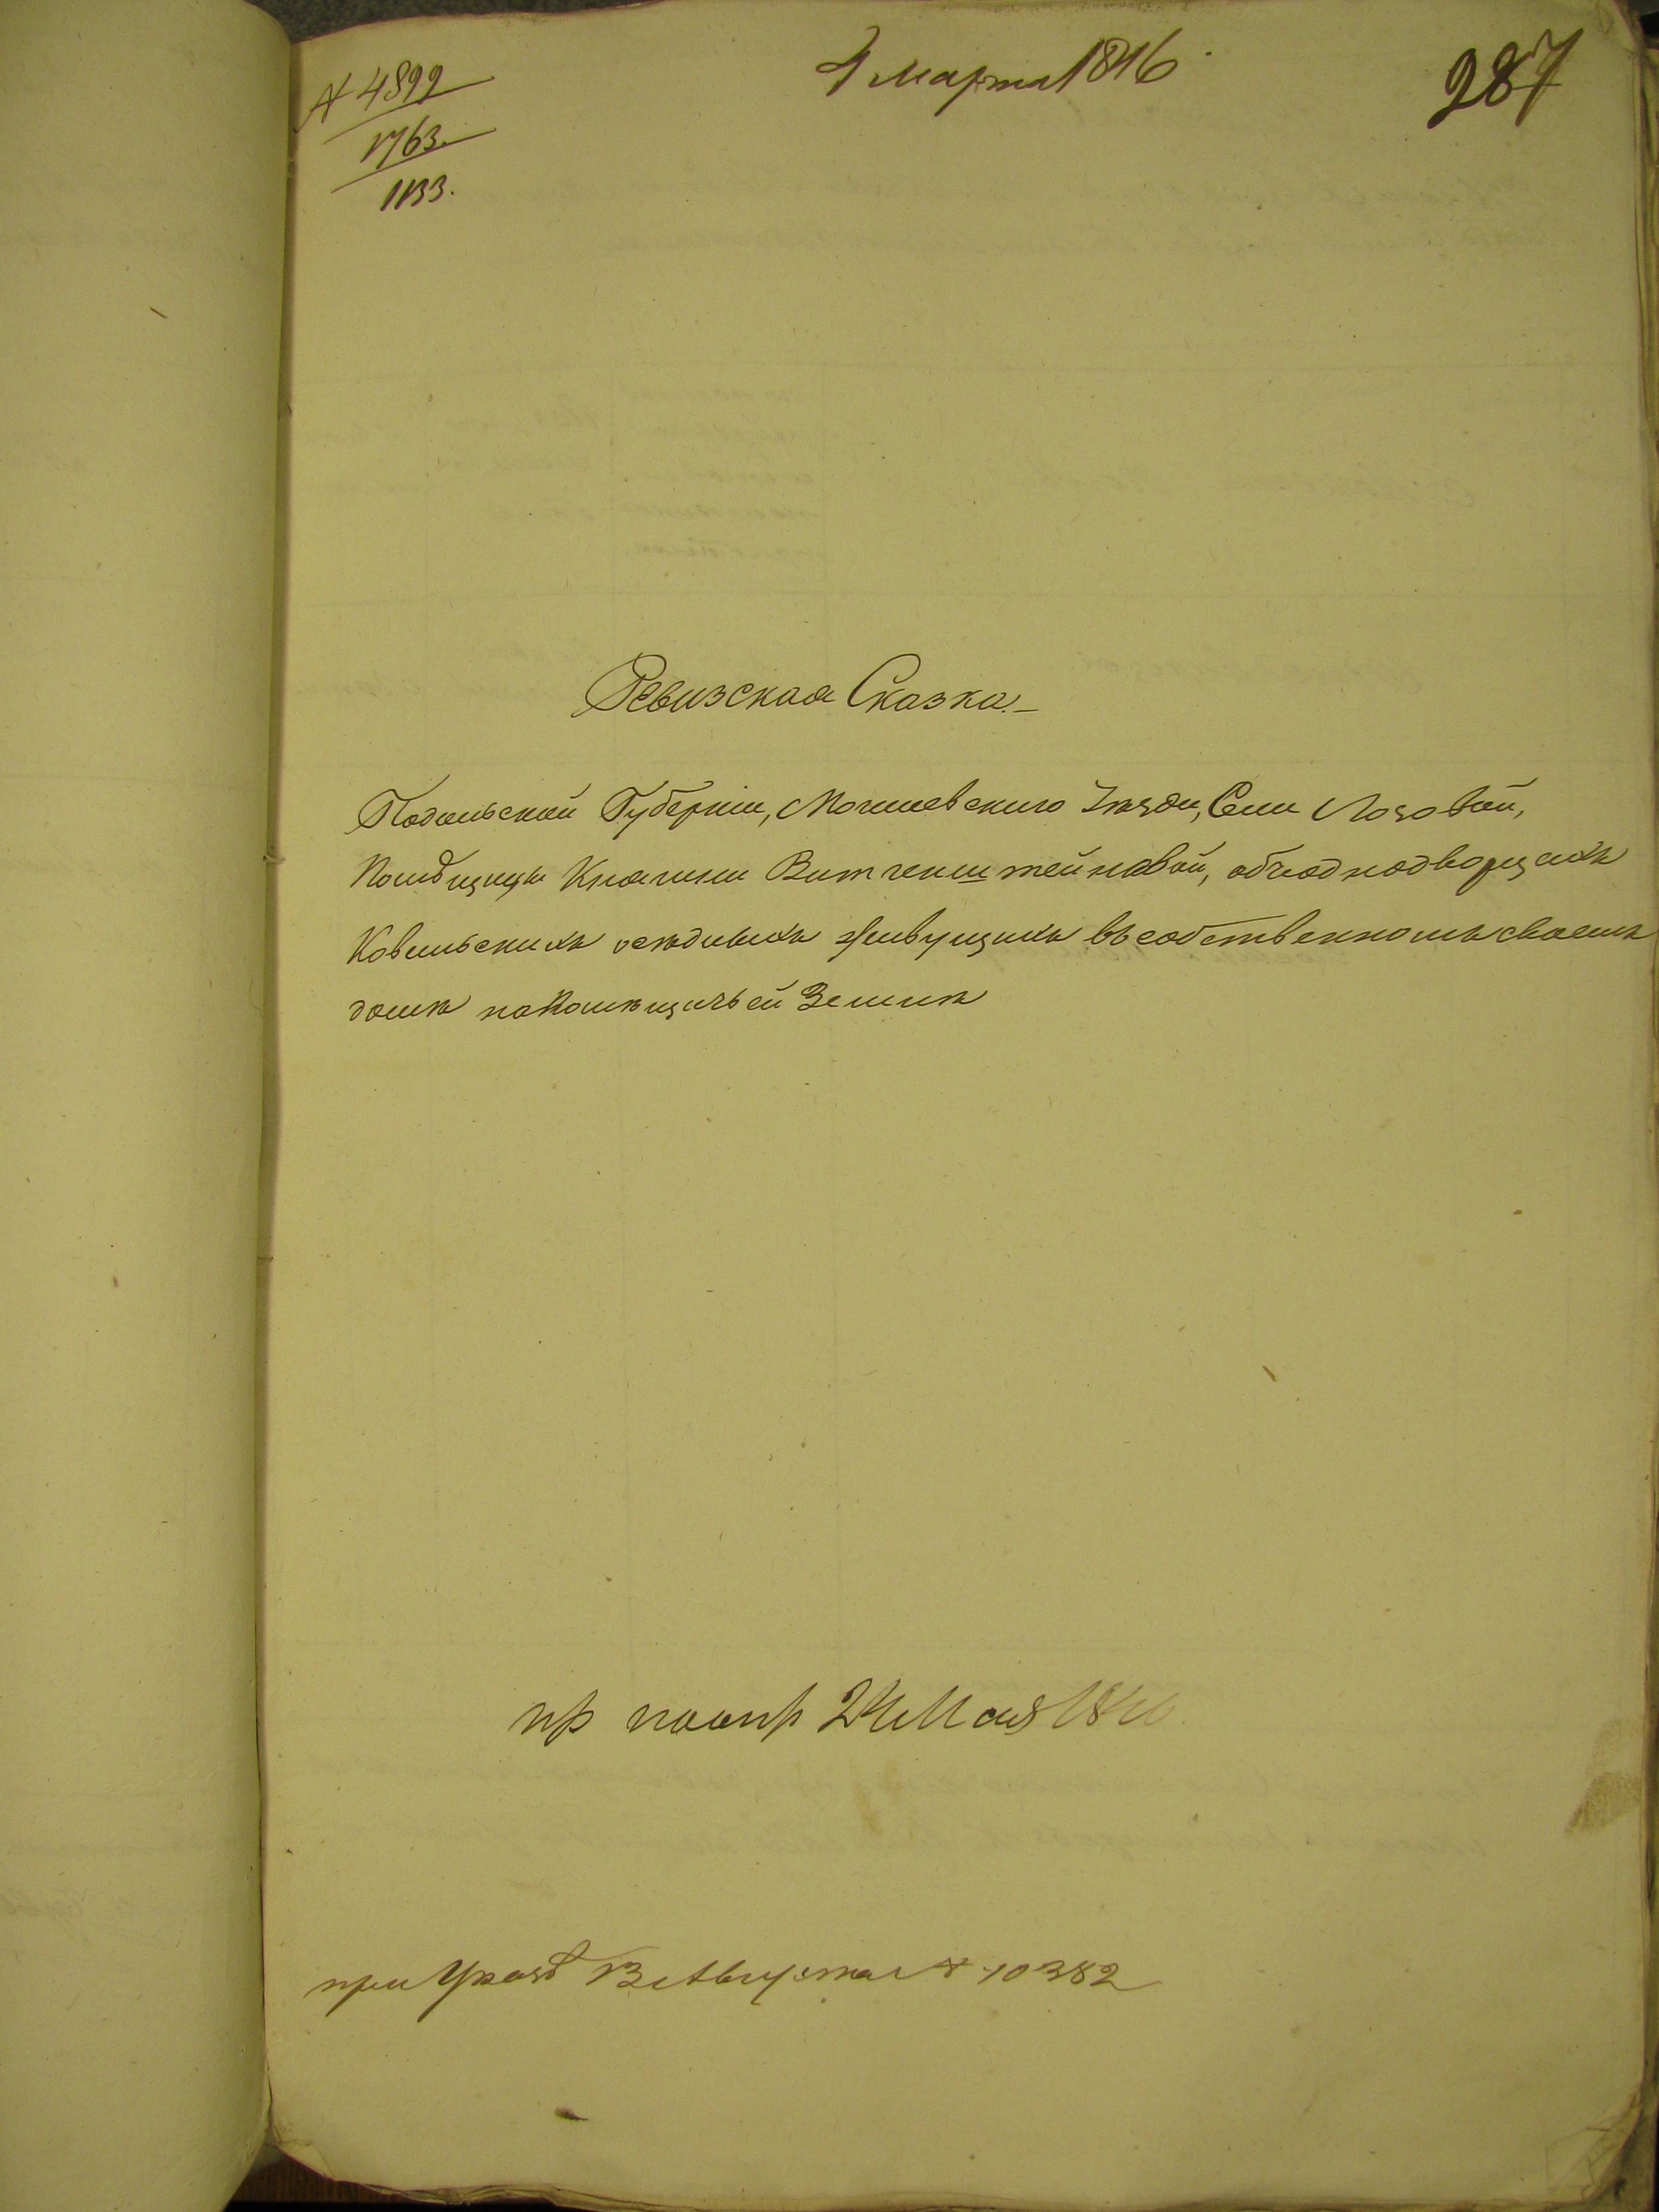 № 4899
1763.
1133.
4 Марта 1816
287
Ревизская Сказка.
Подольской Губерніи, Могилевского Уѣзда, Села Лозовой,
Помѣщицы Княгини Витгенштейновой, объ однодворцахъ
осѣдлыхъ живущихъ въ собственномъ своемъ
домѣ на Помѣщичьей Землѣ
24 Мая
при Указѣ Августа № 10382